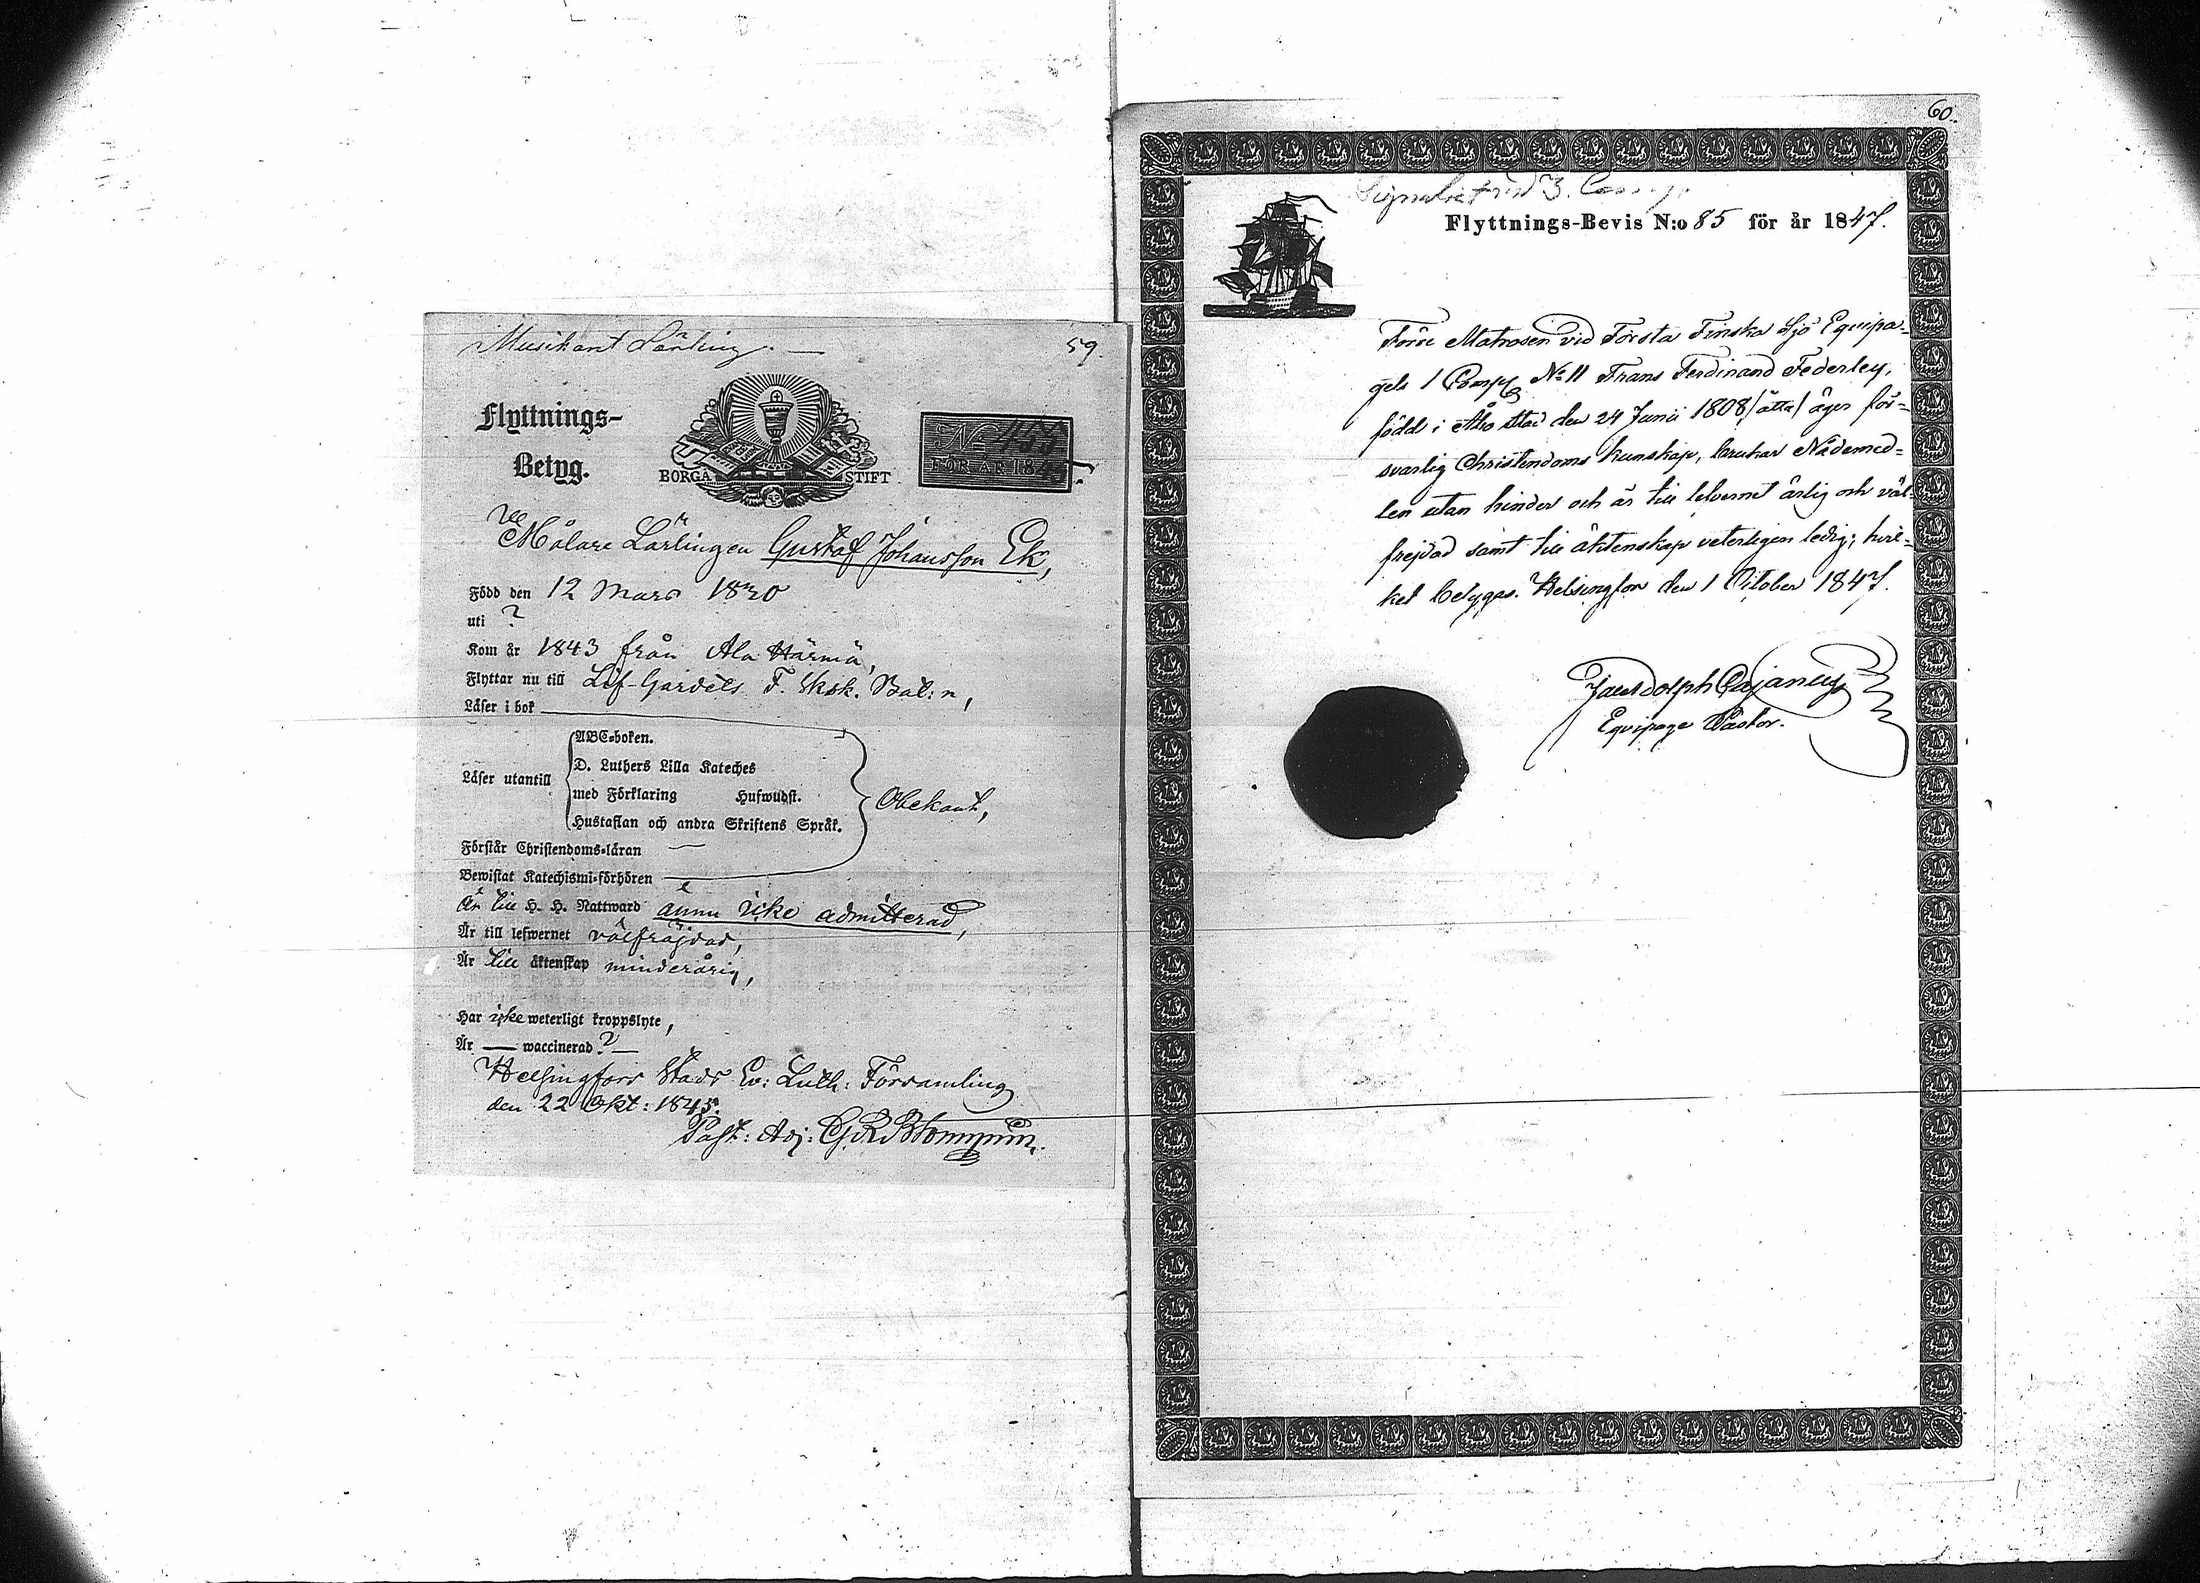 Musikant Lärling.
59.
Flyttnings-
Betyg.
BORGÅ STIFT
N:o 455
FÖR ÅR 1845
Målare Lärlingen Gustaf Johansson Ek,
Född den 12 Mars 1830
uti ?
Kom år 1843 från Ala Härmä,
Flyttar nu till Lif-Gardets F. Sksk. Bat:n,
Läser i bok
Läser utantill
ABC-boken.
D. Luthers Lilla Kateches
med Förklaring Hufwudst.
Hustaflan och andra Skriftens Språk.
Obekant,
Förstår Christendoms-läran
Bewistat Katechismi-förhören
Är till H. H. Nattward ännu icke admitterad,
Är till lefwernet välfräjdad,
Är till äktenskap minderårig,
Har icke weterligt kroppslyte,
Är — waccinerad ? —
Helsingfors Stads Ev: Luth: Församling
den 22 Okt: 1845.
Past: Adj:
60.
3.
Flyttnings-Bevis N:o 85 för år 1847.
Förre Matrosen vid Första Finska Sjö Equipa-
gets 1 Comp N:o 11 Frans Ferdinand Federley,
född i Åbo stad den 24 Junii 1808 /åtta/ äger för-
svarlig Christendoms kunskap, brukar Nådemed-
len utan hinder och är till lefvernet ärlig och väl-
frejdad samt till äktenskap veterligen ledig; hvil-
ket betygas. Helsingfors den 1 October 1847.
Cajanus
Equipage Pastor.